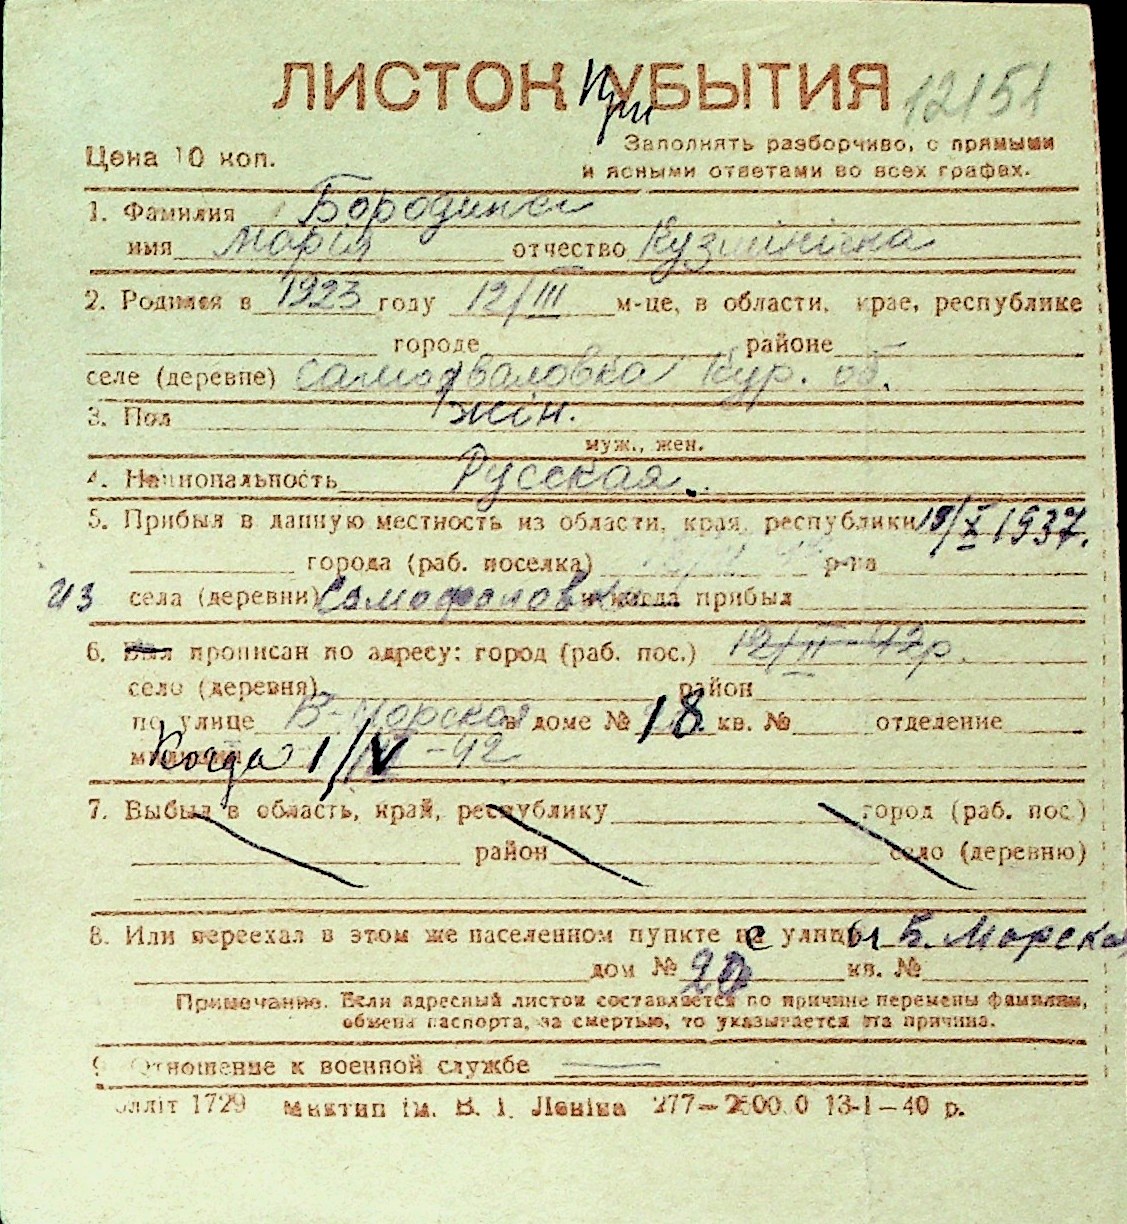 ЛИСТОК При УБЫТИЯ 12151
Цена 10 коп.
Заполнять разборчиво, с прямыми
и ясными ответами во всех графах.
1. Фамилия Бородина
имя Марія отчество Кузмінічна
2. Родился в 1923 году 12/III м-це, в области, крае, республике
городе районе
селе (деревне) Кур. об.
3. Пол жін.
муж., жен.
4. Национальность Русская.
5. Прибыл в данную местность из области, края, республики 19/X 1937.
города (раб. поселка) р-на
из села (деревни) и когда прибыл
6. Был прописан по адресу: город (раб. пос.) 12/II-42р.
село (деревня) район
по улице В-Морская в доме № 18 кв. № отделение
милиции Когда 1/IV-42
7. Выбыл в область, край, республику город (раб. пос.)
район село (деревню)
8. Или переехал в этом же населенном пункте с улицы Б. Морская
дом № 20 кв. №
Примечание. Если адресный листок составляется по причине перемены фамилии,
обмена паспорта, за смертью, то указывается эта причина.
9. Отношение к военной службе —
1729 Миктип ім. В. І. Леніна 13-I—40 р.